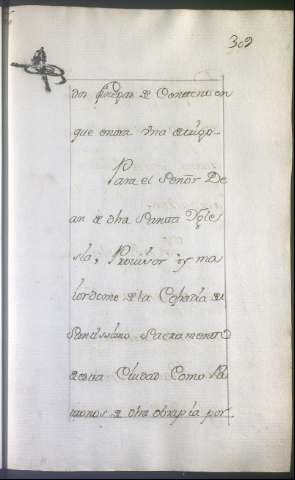 309
dos fanegas de Contene en
que entra una de trigo.
Para el Señor De
an de dha Santa Ygle
sia; Provisor y ma
lordomo de la Cofradia del
Santissimo Sacramento
de esta Ciudad Como Pa
tronos de dha obra pia por